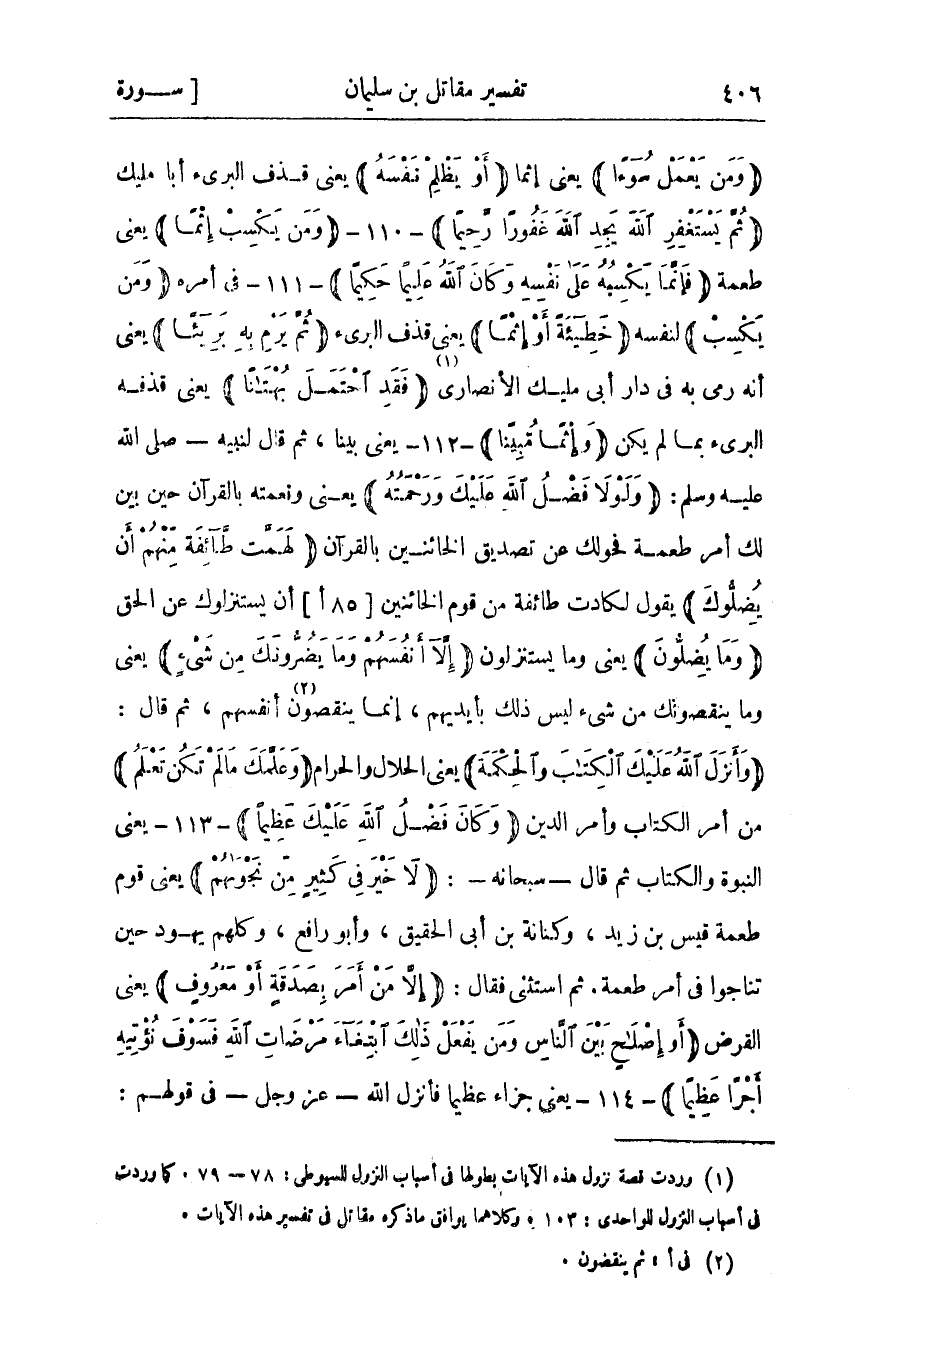 ٤٠٦ تفسير مقاتل بن سليمان [ ســورة
﴿ وَمَن يَعْمَلْ سُوٓءًا ﴾ يعنى إثما ﴿ أَوْ يَظْلِمْ نَفْسَهُ ﴾ يعنى قـذف البرىء أبا مليك
﴿ ثُمَّ يَسْتَغْفِرِ ٱللَّهَ يَجِدِ ٱللَّهَ غَفُورًا رَّحِيمًا ﴾ -١١٠- ﴿ وَمَن يَكْسِبْ إِثْمًا ﴾ يعنى
طعمة ﴿ فَإِنَّمَا يَكْسِبُهُ عَلَىٰ نَفْسِهِ وَكَانَ ٱللَّهُ عَلِيمًا حَكِيمًا ﴾ -١١١- فى أمره ﴿ وَمَن
يَكْسِبْ ﴾ لنفسه ﴿ خَطِيٓئَةً أَوْ إِثْمًا ﴾ يعنى قذف البرىء ﴿ ثُمَّ يَرْمِ بِهِ بَرِيٓئًا ﴾ يعنى
أنه رمى به فى دار أبى مليـك الأنصارى (١) ﴿ فَقَدِ ٱحْتَمَـلَ بُهْتَٰنًا ﴾ يعنى قذفـه
البرىء بمـا لم يكن ﴿ وَإِثْمًا مُّبِينًا ﴾ -١١٢- يعنى بينا ، ثم قال لنبيه — صلى الله
عليـه وسلم : ﴿ وَلَوْلَا فَضْـلُ ٱللَّهِ عَلَيْكَ وَرَحْمَتُهُ ﴾ يعـنى ونعمته بالقرآن حين بين
لك أمر طعمـة فحولك عن تصديق الخائنـين بالقرآن ﴿ لَهَمَّت طَّآئِفَةٌ مِّنْهُمْ أَن
يُضِلُّوكَ ﴾ يقول لكادت طائفة من قوم الخائنين [ ٨٥ أ ] أن يستنزلوك عن الحق
﴿ وَمَا يُضِلُّونَ ﴾ يعنى وما يستنزلون ﴿ إِلَّآ أَنفُسَهُمْ وَمَا يَضُرُّونَكَ مِن شَىْءٍ ﴾ يعنى
وما ينقصونك من شىء ليس ذلك بأيديهم ، إنمـا ينقصون (٢) أنفسهم ، ثم قال :
﴿ وَأَنزَلَ ٱللَّهُ عَلَيْكَ ٱلْكِتَٰبَ وَٱلْحِكْمَةَ ﴾ يعنى الحلال والحرام ﴿ وَعَلَّمَكَ مَالَمْ تَكُن تَعْلَمُ ﴾
من أمر الكتاب وأمر الدين ﴿ وَكَانَ فَضْـلُ ٱللَّهِ عَلَيْكَ عَظِيمًا ﴾ -١١٣- يعنى
النبوة والكتاب ثم قال — سبحانه — : ﴿ لَا خَيْرَ فِى كَثِيرٍ مِّن نَّجْوَىٰهُمْ ﴾ يعنى قوم
طعمة قيس بن زيد ، وكنانة بن أبى الحقيق ، وأبو رافع ، وكلهم يهـود حين
تناجوا فى أمر طعمة . ثم استثنى فقال : ﴿ إِلَّا مَنْ أَمَرَ بِصَدَقَةٍ أَوْ مَعْرُوفٍ ﴾ يعنى
القرض ﴿ أَوْ إِصْلَٰحٍ بَيْنَ ٱلنَّاسِ وَمَن يَفْعَلْ ذَٰلِكَ ٱبْتِغَآءَ مَرْضَاتِ ٱللَّهِ فَسَوْفَ نُؤْتِيهِ
أَجْرًا عَظِيمًا ﴾ - ١١٤ - يعنى جزاء عظيما فأنزل الله — عز وجل — فى قولهـم :
(١) وردت قصة نزول هذه الآيات بطولها فى أسباب النزول للسيوطى : ٧٨ — ٧٩ . كما وردت
فى أسباب النزول للواحدى : ١٠٣ . وكلاهما يوافق ماذكره مقاتل فى تفسير هذه الآيات .
(٢) فى أ : ثم ينقضون .